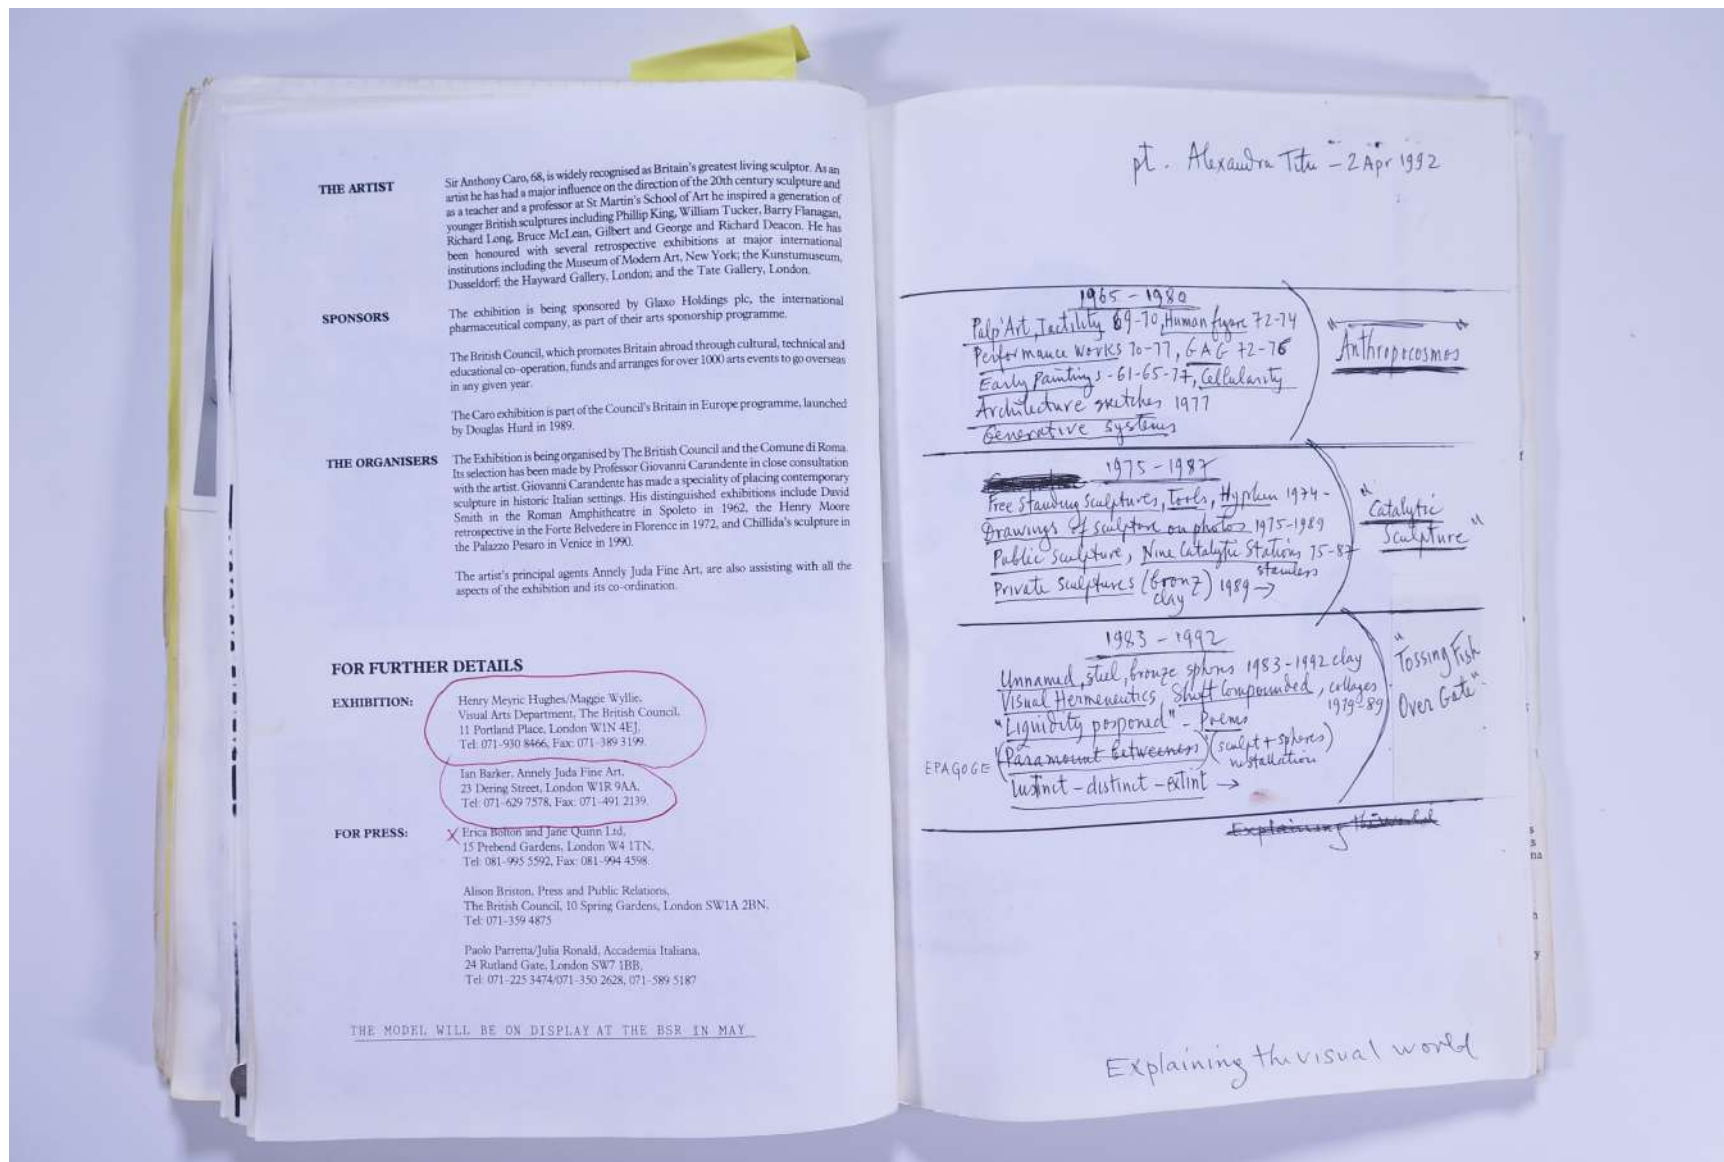 THE ARTIST
Sir Anthony Caro, 68, is widely recognised as Britain's greatest living sculptor. As an
artist he has had a major influence on the direction of the 20th century sculpture and
as a teacher and a professor at St Martin's School of Art he inspired a generation of
younger British sculptures including Phillip King, William Tucker, Barry Flanagan,
Richard Long, Bruce McLean, Gilbert and George and Richard Deacon. He has
been honoured with several retrospective exhibitions at major international
institutions including the Museum of Modern Art, New York; the Kunstumuseum,
Dusseldorf; the Hayward Gallery, London; and the Tate Gallery, London.
SPONSORS
The exhibition is being sponsored by Glaxo Holdings plc, the international
pharmaceutical company, as part of their arts sponorship programme.
The British Council, which promotes Britain abroad through cultural, technical and
educational co-operation, funds and arranges for over 1000 arts events to go overseas
in any given year.
The Caro exhibition is part of the Council's Britain in Europe programme, launched
by Douglas Hurd in 1989.
THE ORGANISERS
The Exhibition is being organised by The British Council and the Comune di Roma.
Its selection has been made by Professor Giovanni Carandente in close consultation
with the artist. Giovanni Carandente has made a speciality of placing contemporary
sculpture in historic Italian settings. His distinguished exhibitions include David
Smith in the Roman Amphitheatre in Spoleto in 1962, the Henry Moore
retrospective in the Forte Belvedere in Florence in 1972, and Chillida's sculpture in
the Palazzo Pesaro in Venice in 1990.
The artist's principal agents Annely Juda Fine Art, are also assisting with all the
aspects of the exhibition and its co-ordination.
FOR FURTHER DETAILS
EXHIBITION:
Henry Meyric Hughes/Maggie Wyllie,
Visual Arts Department, The British Council,
11 Portland Place, London W1N 4EJ,
Tel: 071-930 8466, Fax: 071-389 3199.
Ian Barker, Annely Juda Fine Art,
23 Dering Street, London W1R 9AA,
Tel: 071-629 7578, Fax: 071-491 2139.
FOR PRESS:
X Erica Bolton and Jane Quinn Ltd,
15 Prebend Gardens, London W4 1TN,
Tel: 081-995 5592, Fax: 081-994 4598.
Alison Briston, Press and Public Relations,
The British Council, 10 Spring Gardens, London SW1A 2BN,
Tel: 071-359 4875
Paolo Parretta/Julia Ronald, Accademia Italiana,
24 Rutland Gate, London SW7 1BB,
Tel: 071-225 3474/071-350 2628, 071-589 5187
THE MODEL WILL BE ON DISPLAY AT THE BSR IN MAY
pt. Alexandra Titu - 2 Apr 1992
1965 - 1980
Palp'Art, Tactility 69-70, Human figure 72-74
Performance Works 70-77, GAG 72-76
Early Paintings - 61-65-77, Cellularity
Architecture sketches 1977
Generative Systems
"Anthropocosmos"
1975 - 1987
Free Standing Sculptures, Tools, Hyphen 1974 -
Drawings of sculpture on photos 1975-1989
Public sculpture, Nine Catalytic Stations 75-87
stainless
Private sculptures (bronz) 1989 →
clay
"Catalytic
Sculpture"
1983 - 1992
Unnamed, steel, bronze 1983-1992 clay
Visual Hermeneutics, Shift Compounded, collages
1979-89
"Liquidity posponed" - Poems
EPAGOGE (Paramount betweeness) (sculpt + spheres)
installation
Instinct - distinct - extint →
"Tossing Fish
Over Gate"
Explaining the World
Explaining the visual world